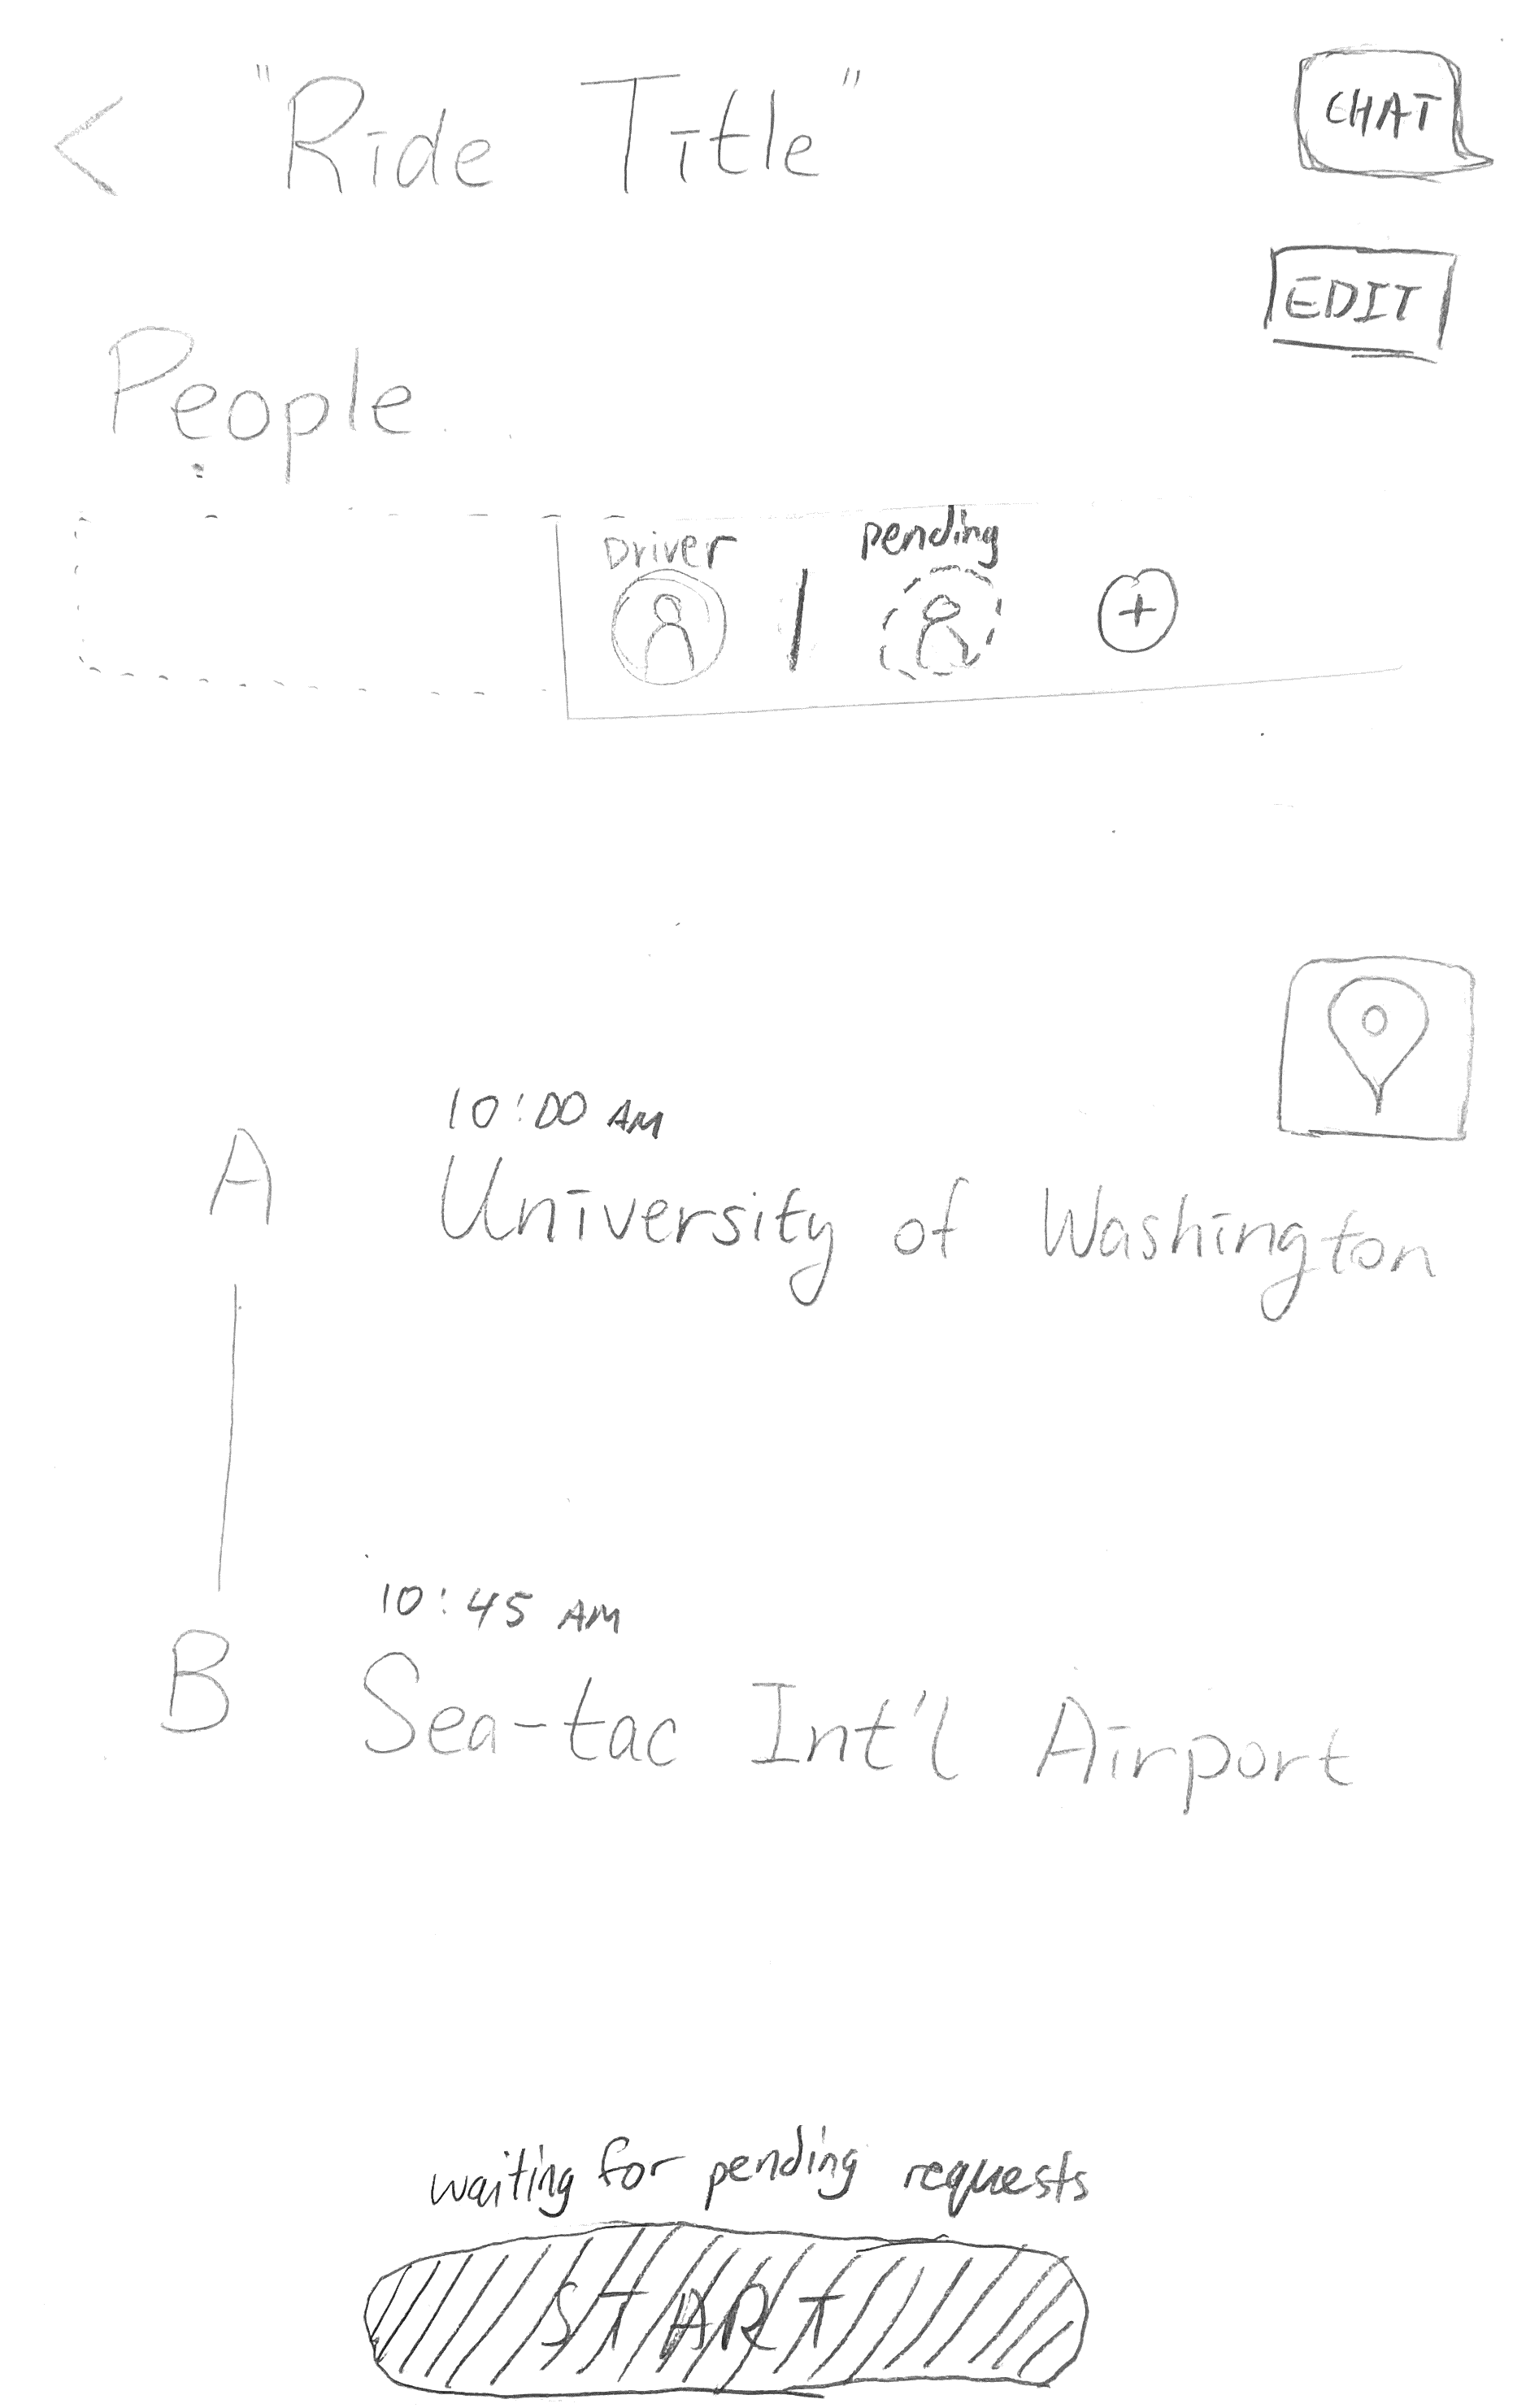 < "Ride Title"
CHAT
EDIT
People
Driver
pending
+
10:00 AM
A University of Washington
10:45 AM
B Sea-tac Int'l Airport
waiting for pending requests
START